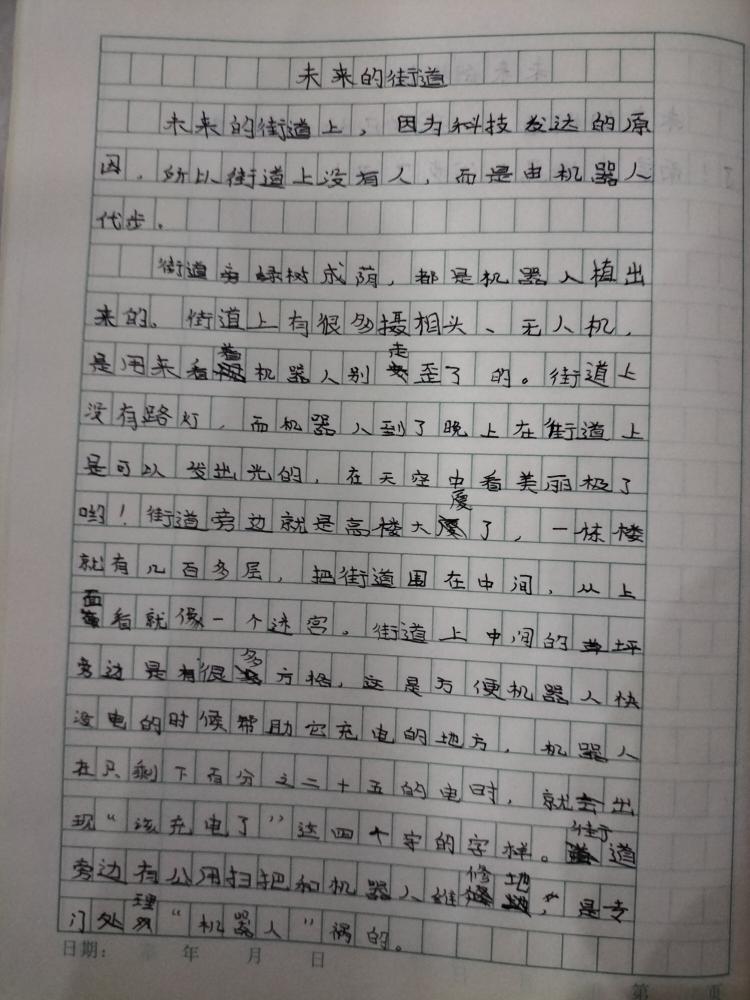 未来的街道
未来的街道上，因为科技发达的原
因，所以街道上没有人，而是由机器人
代步。
街道旁绿树成荫，都是机器人植出
来的。街道上有很多摄相头、无人机，
是用来看着机器人别走歪了的。街道上
没有路灯，而机器人到了晚上在街道上
是可以发出光的，在天空中看美丽极了
哟！街道旁边就是高楼大厦了，一栋楼
就有几百多层，把街道围在中间，从上
面看就像一个迷宫。街道上中间的草坪
旁边是有很多方格，这是方便机器人快
没电的时候帮助它充电的地方，机器人
在只剩下百分之二十五的电时，就会出
现“该充电了”这四个字的字样。街道
旁边有公用扫把和机器人维修地，是专
门处理“机器人”祸的。
日期： 年 月 日
第 页